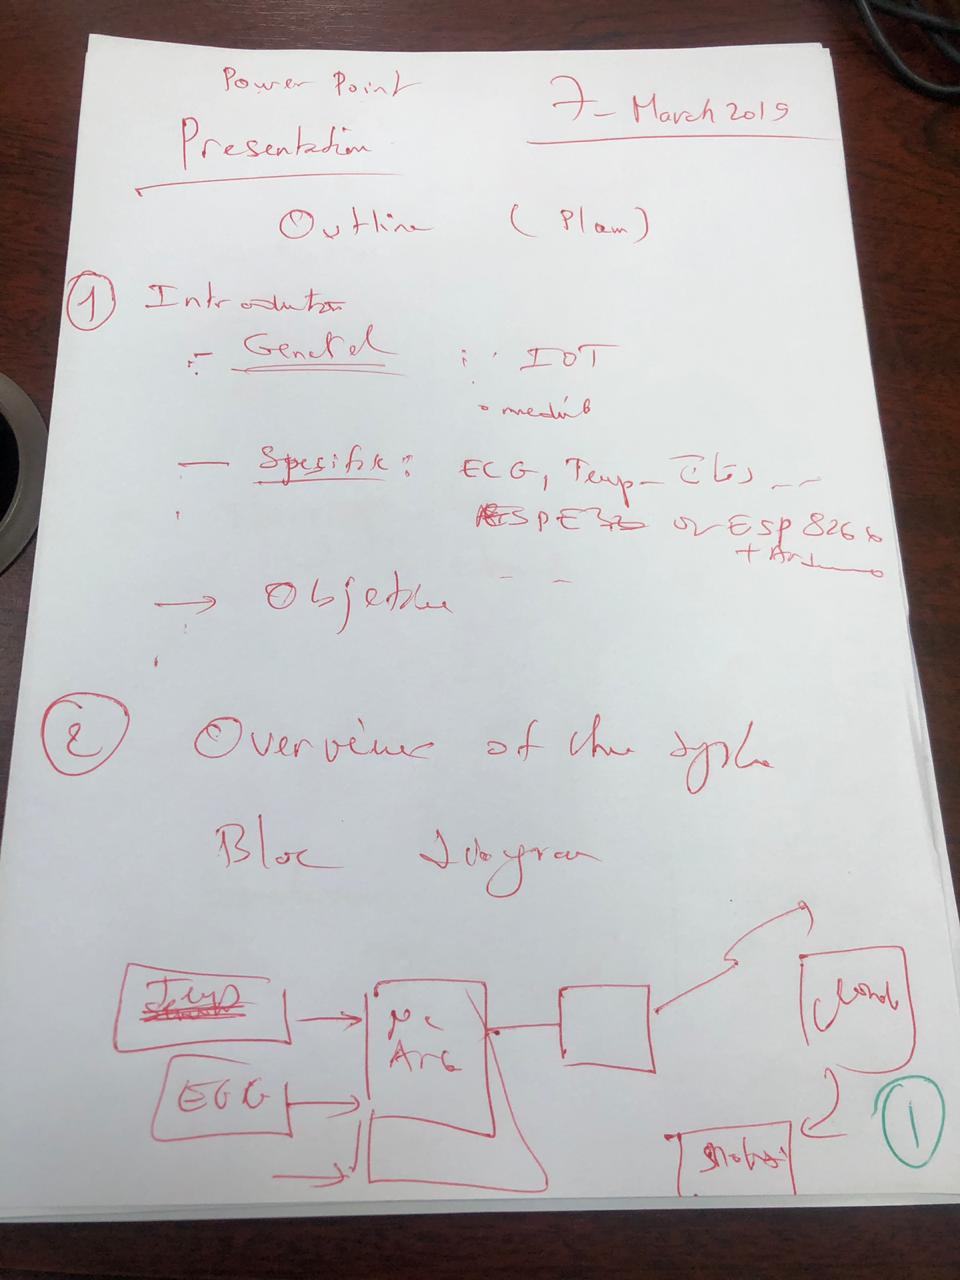 Power Point
Presentation
7- March 2019
Outline (Plan)
1 Introduction
- General : IOT
- Spesific : ECG, Temp
ESPE32 or ESP 8266
+ Arduino
→ Objective
2 Overview of the system
Bloc diagram
Temp
ECG
µc
Ard
cloud
1